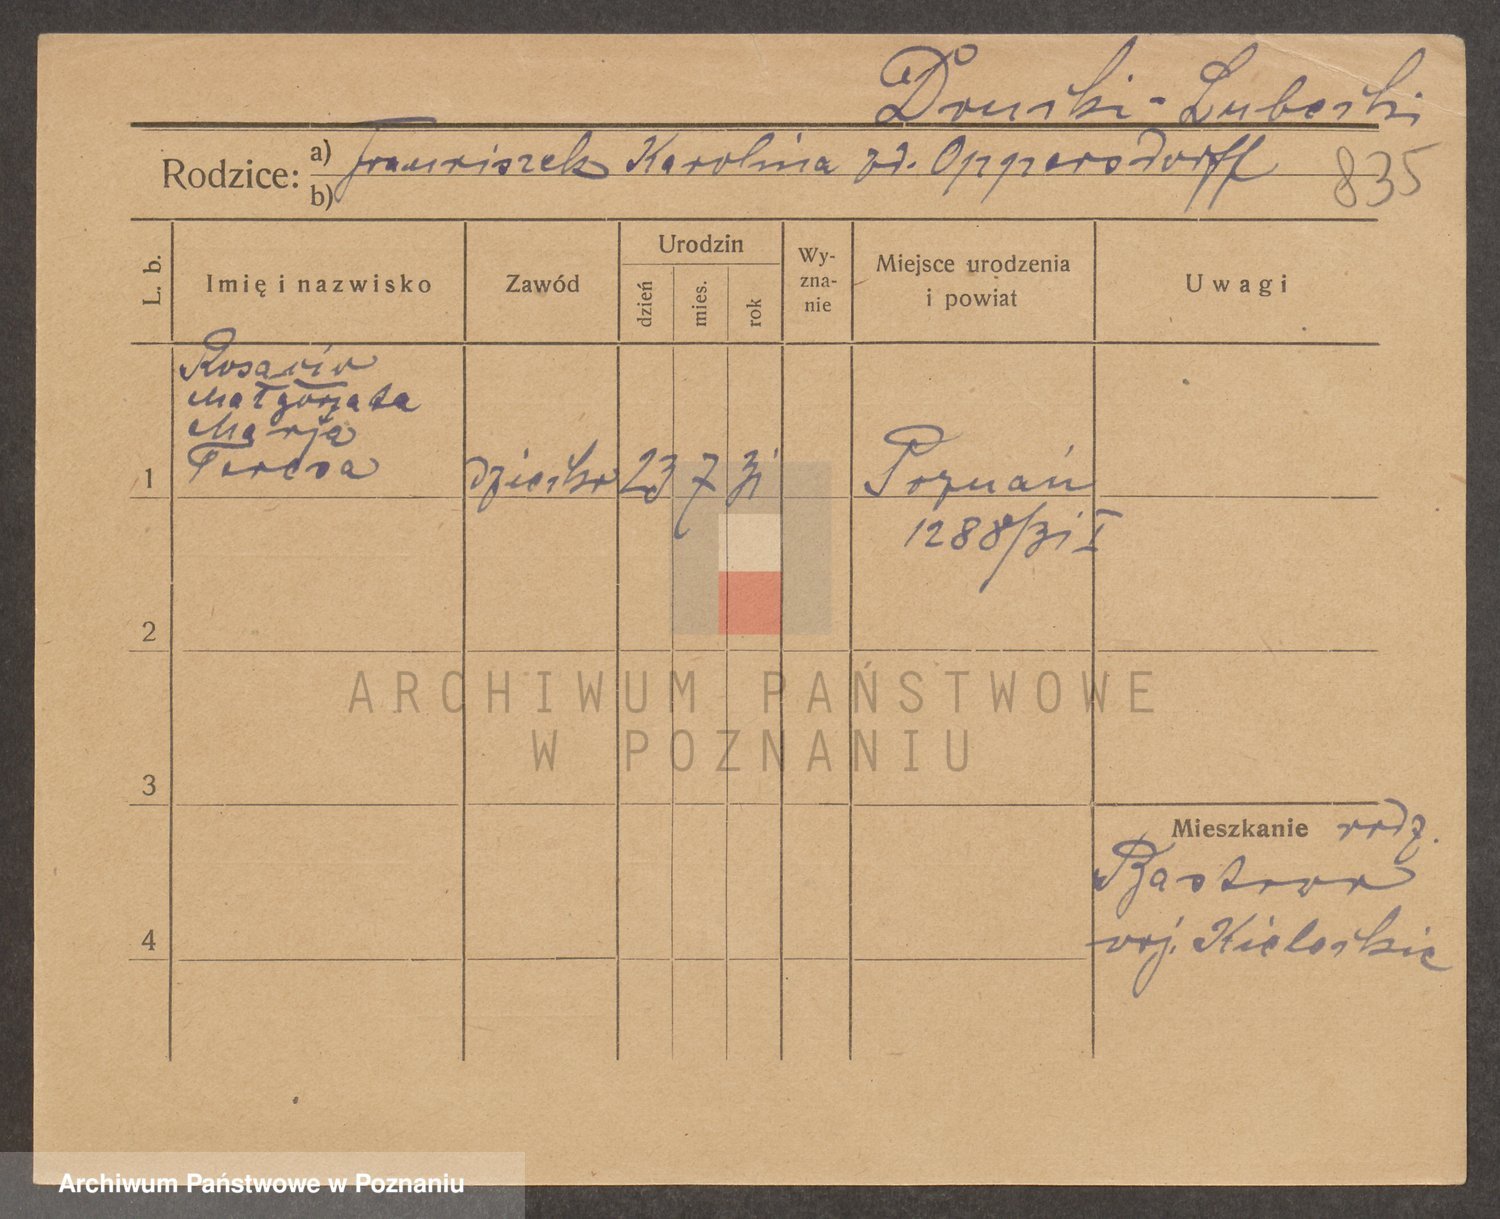 Drucki-Lubecki
Rodzice: a) Franciszek Karolina zd. Oppersdorff
b)
835
L. b.
Imię i nazwisko
Zawód
Urodzin
dzień
mies.
rok
Wy-
zna-
nie
Miejsce urodzenia
i powiat
Uwagi
Rosario
Małgorzata
Marja
Teresa
1
dziecko 23 7 31
Poznań
1288/31 I
2
3
4
Mieszkanie rodz.
woj. Kieleckie
ARCHIWUM PAŃSTWOWE
W POZNANIU
Archiwum Państwowe w Poznaniu